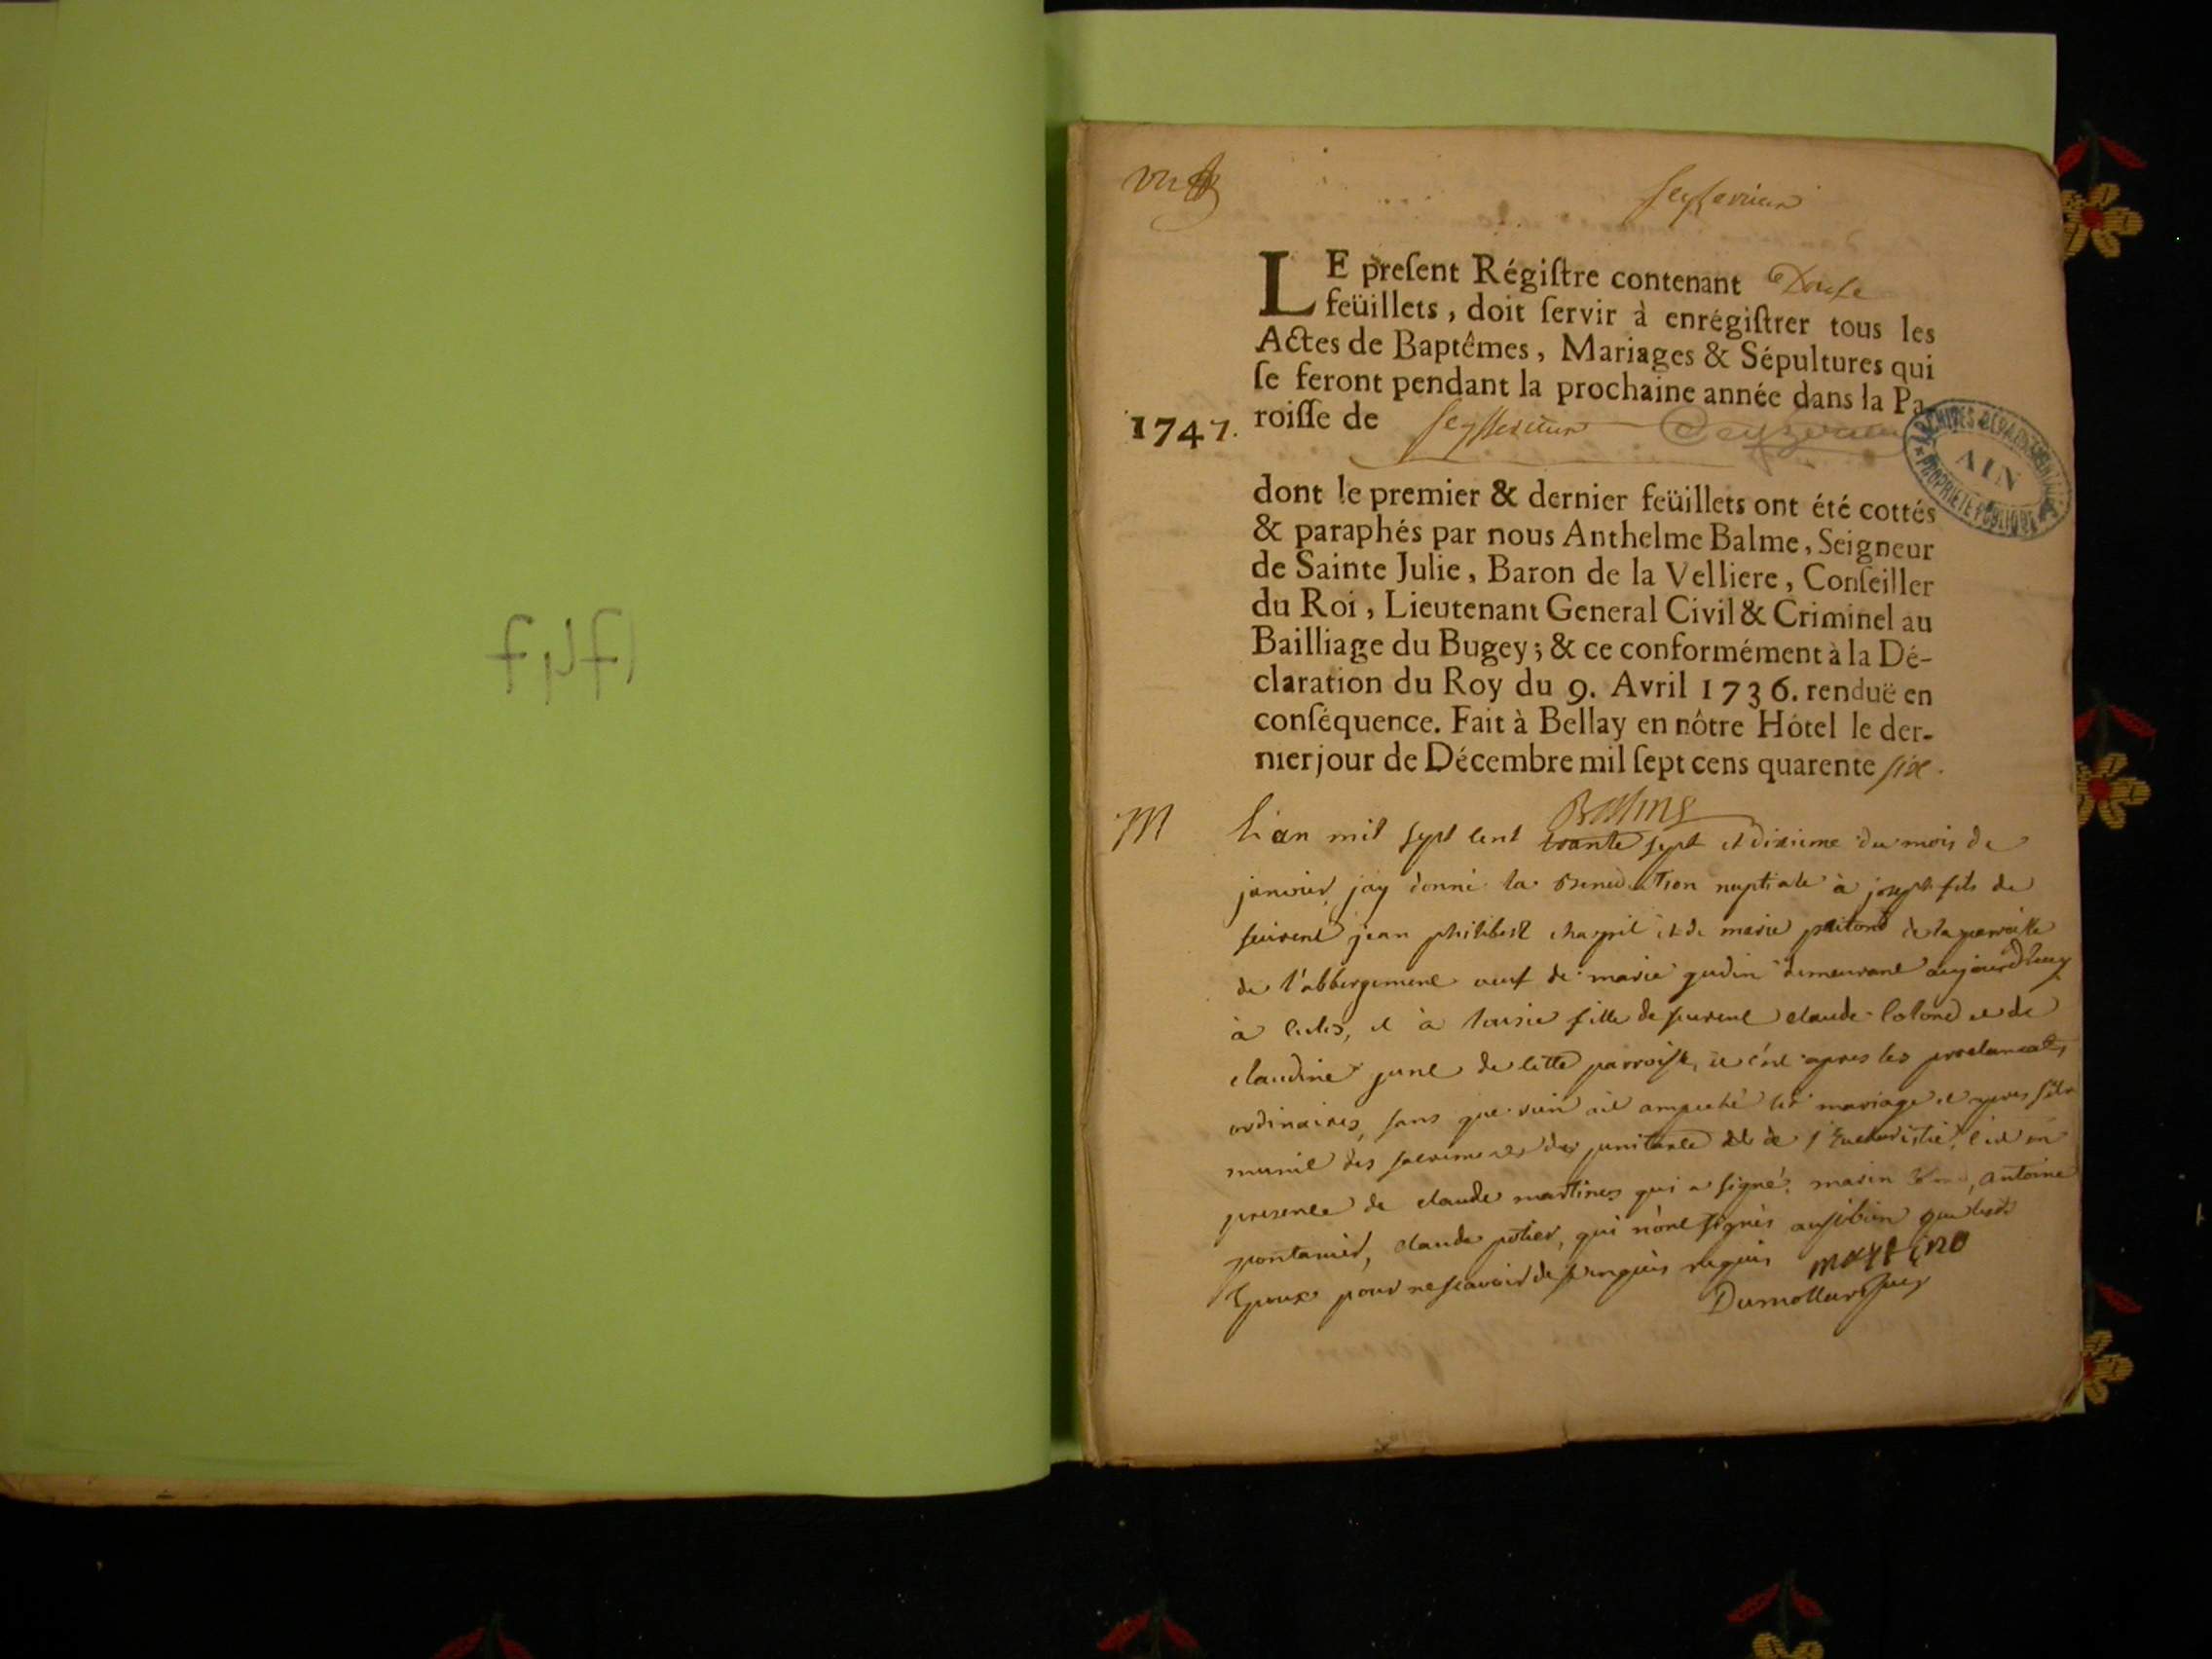 1747
Seysserieu
LE preſent Régiſtre contenant Douse
feüillets, doit ſervir à enrégiſtrer tous les
Actes de Baptêmes, Mariages & Sépultures qui
ſe feront pendant la prochaine année dans la Pa-
1747. roiſſe de Seysserieux Ceyzerieu
ARCHIVES DÉPARTEMENTALES
AIN
PROPRIÉTÉ PUBLIQUE
dont le premier & dernier feüillets ont été cottés
& paraphés par nous Anthelme Balme, Seigneur
de Sainte Julie, Baron de la Velliere, Conſeiller
du Roi, Lieutenant General Civil & Criminel au
Bailliage du Bugey; & ce conformément à la Dé-
claration du Roy du 9. Avril 1736. renduë en
conſéquence. Fait à Bellay en nôtre Hôtel le der-
nier jour de Décembre mil ſept cens quarente six.
Balme
M L'an mil sept cent sept et dixieme du mois de
janvier jay donné la Benediction nuptiale à joseph fils de
jean philibert et de marie de la parroisse
de l'abbergement veuf de marie gudin demeurant aujourdhuy
à et à fille de claude et de
claudine de cette parroisse, et c'est apres les proclamat
ordinaires, sans que rien ait ampeché le mariage et apres s'etre
munit des sacrements de penitance et de l'Eucharistie, c'est en
presence de claude martines qui a signé, marin antoine
pontanier, claude potier, qui n'ont signés aussibien que lesd
Epoux pour ne scavoir de ce enquis requis martino
Dumollard